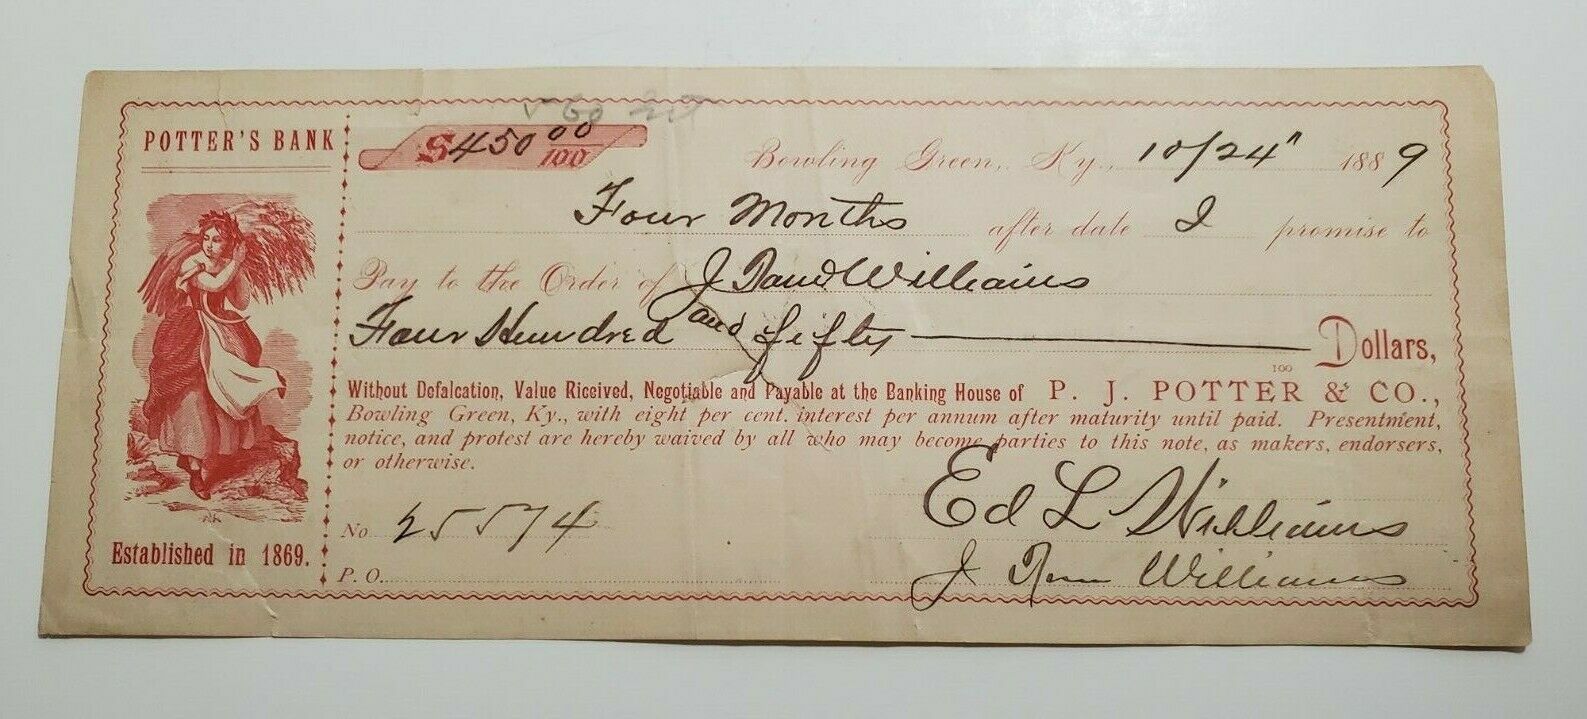 POTTER'S BANK
$450 00/100
Bowling Green, Ky., 10/24" 1889
Four Months after date I promise to
Pay to the Order of J Williams
Four Hundred and fifty Dollars,
100
Without Defalcation, Value Riceived, Negotiable and Payable at the Banking House of P. J. POTTER & CO.,
Bowling Green, Ky., with eight per cent. interest per annum after maturity until paid. Presentment,
notice, and protest are hereby waived by all who may become parties to this note, as makers, endorsers,
or otherwise.
Ed L Williams
No 25574
J Williams
P. O.
Established in 1869.